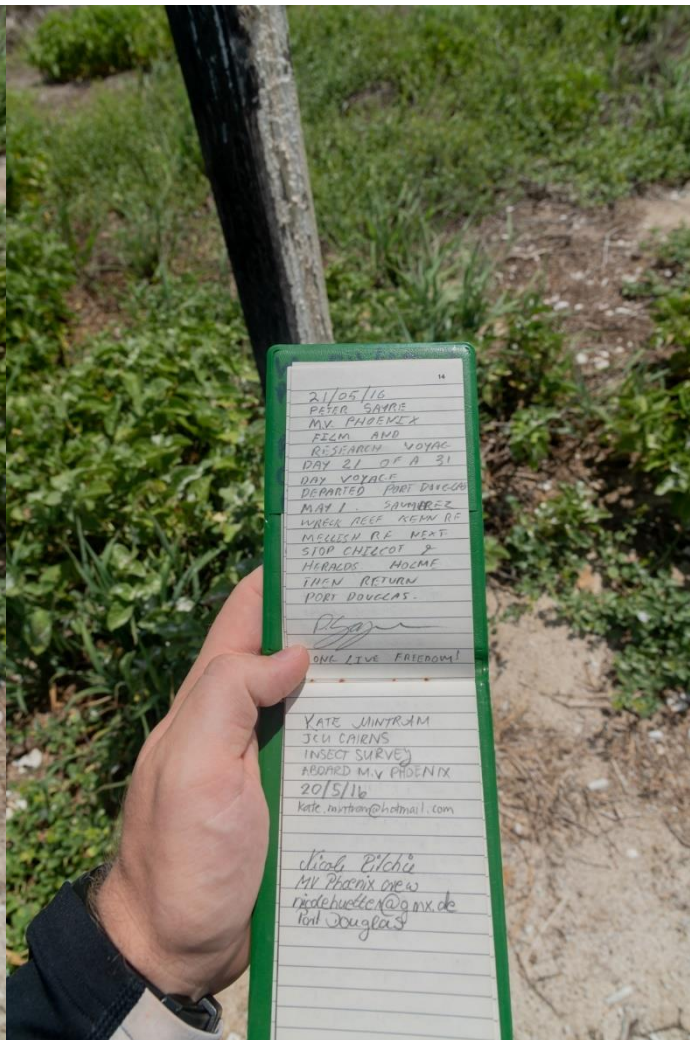 14
21/05/16
PETER SAYRE
M.V. PHOENIX
FILM AND
RESEARCH VOYAG
DAY 21 OF A 31
DAY VOYAGE
DEPARTED PORT DOUGLAS
MAY 1. SAUMAREZ
WRECK REEF KENN RF
MELLISH RF NEXT
STOP CHILCOT &
HERALDS HOLME
THEN RETURN
PORT DOUGLAS.
ONE LIVE FREEDOM!
KATE MINTRAM
JCU CAIRNS
INSECT SURVEY
ABOARD M.V PHOENIX
20/5/16
kate.mintram@hotmail.com
Nicole Ritchie
MV Phoenix crew
nicolehuetten@gmx.de
Port Douglas